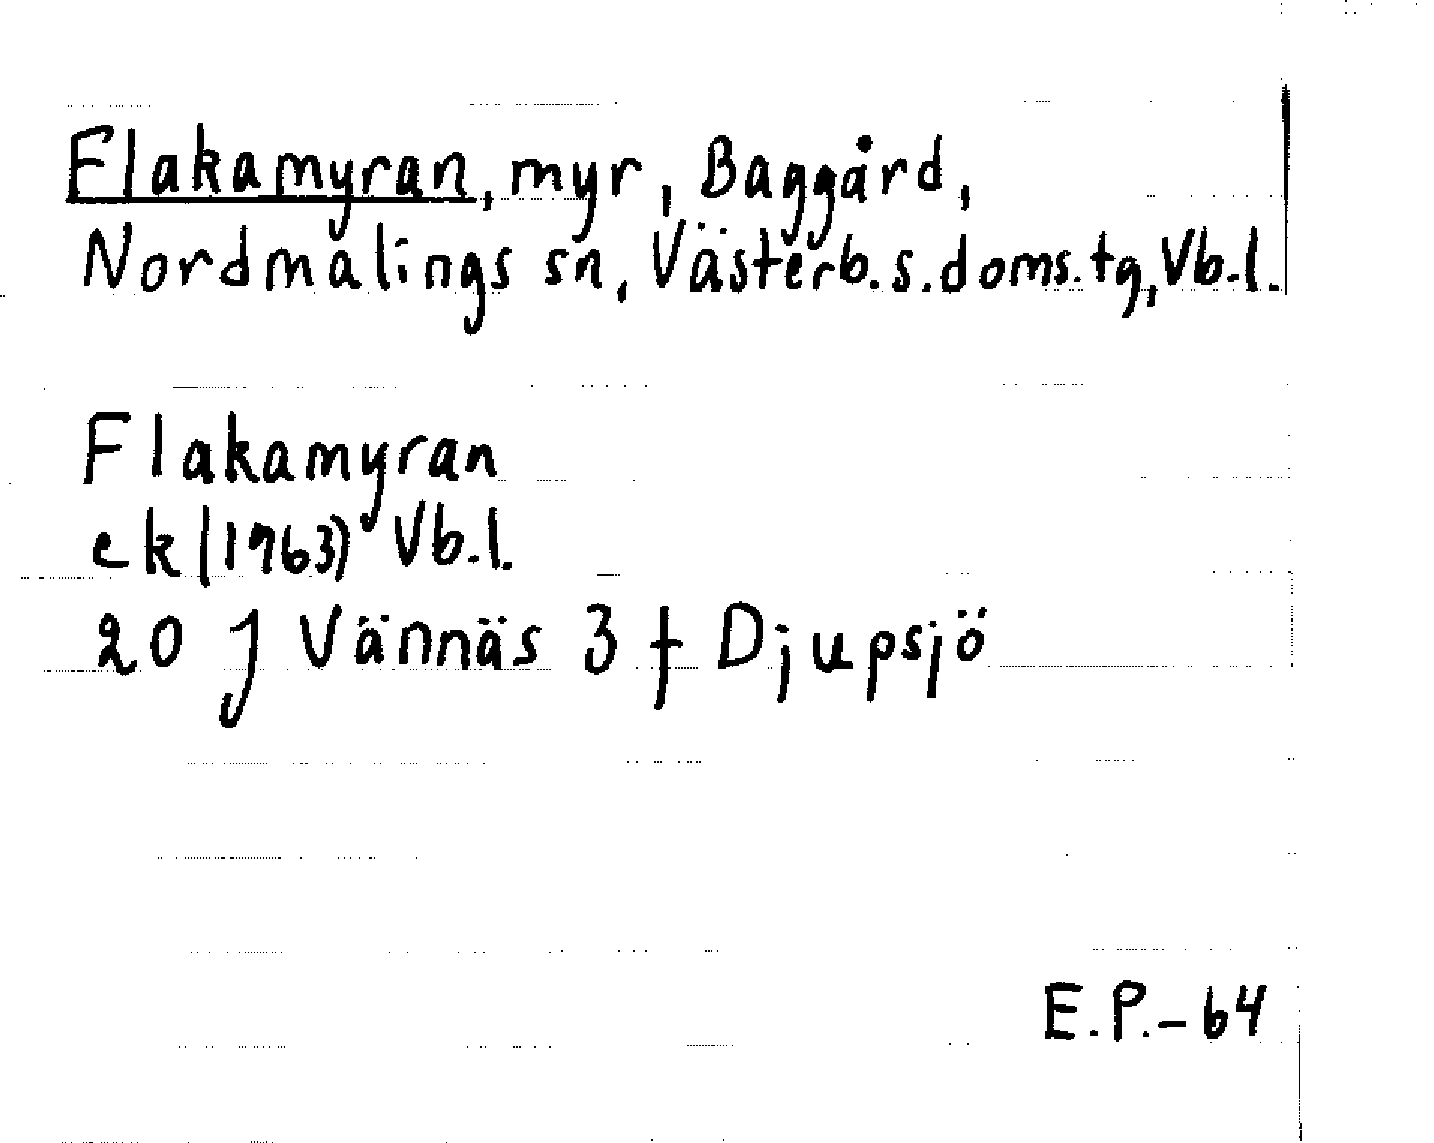 Flakamyran, myr, Baggård,
Nordmalings sn, Västerb.s.doms.tg, Vb.l.
Flakamyran
ek (1963) Vb.l.
20 J Vännäs 3 f Djupsjö
E.P.-64